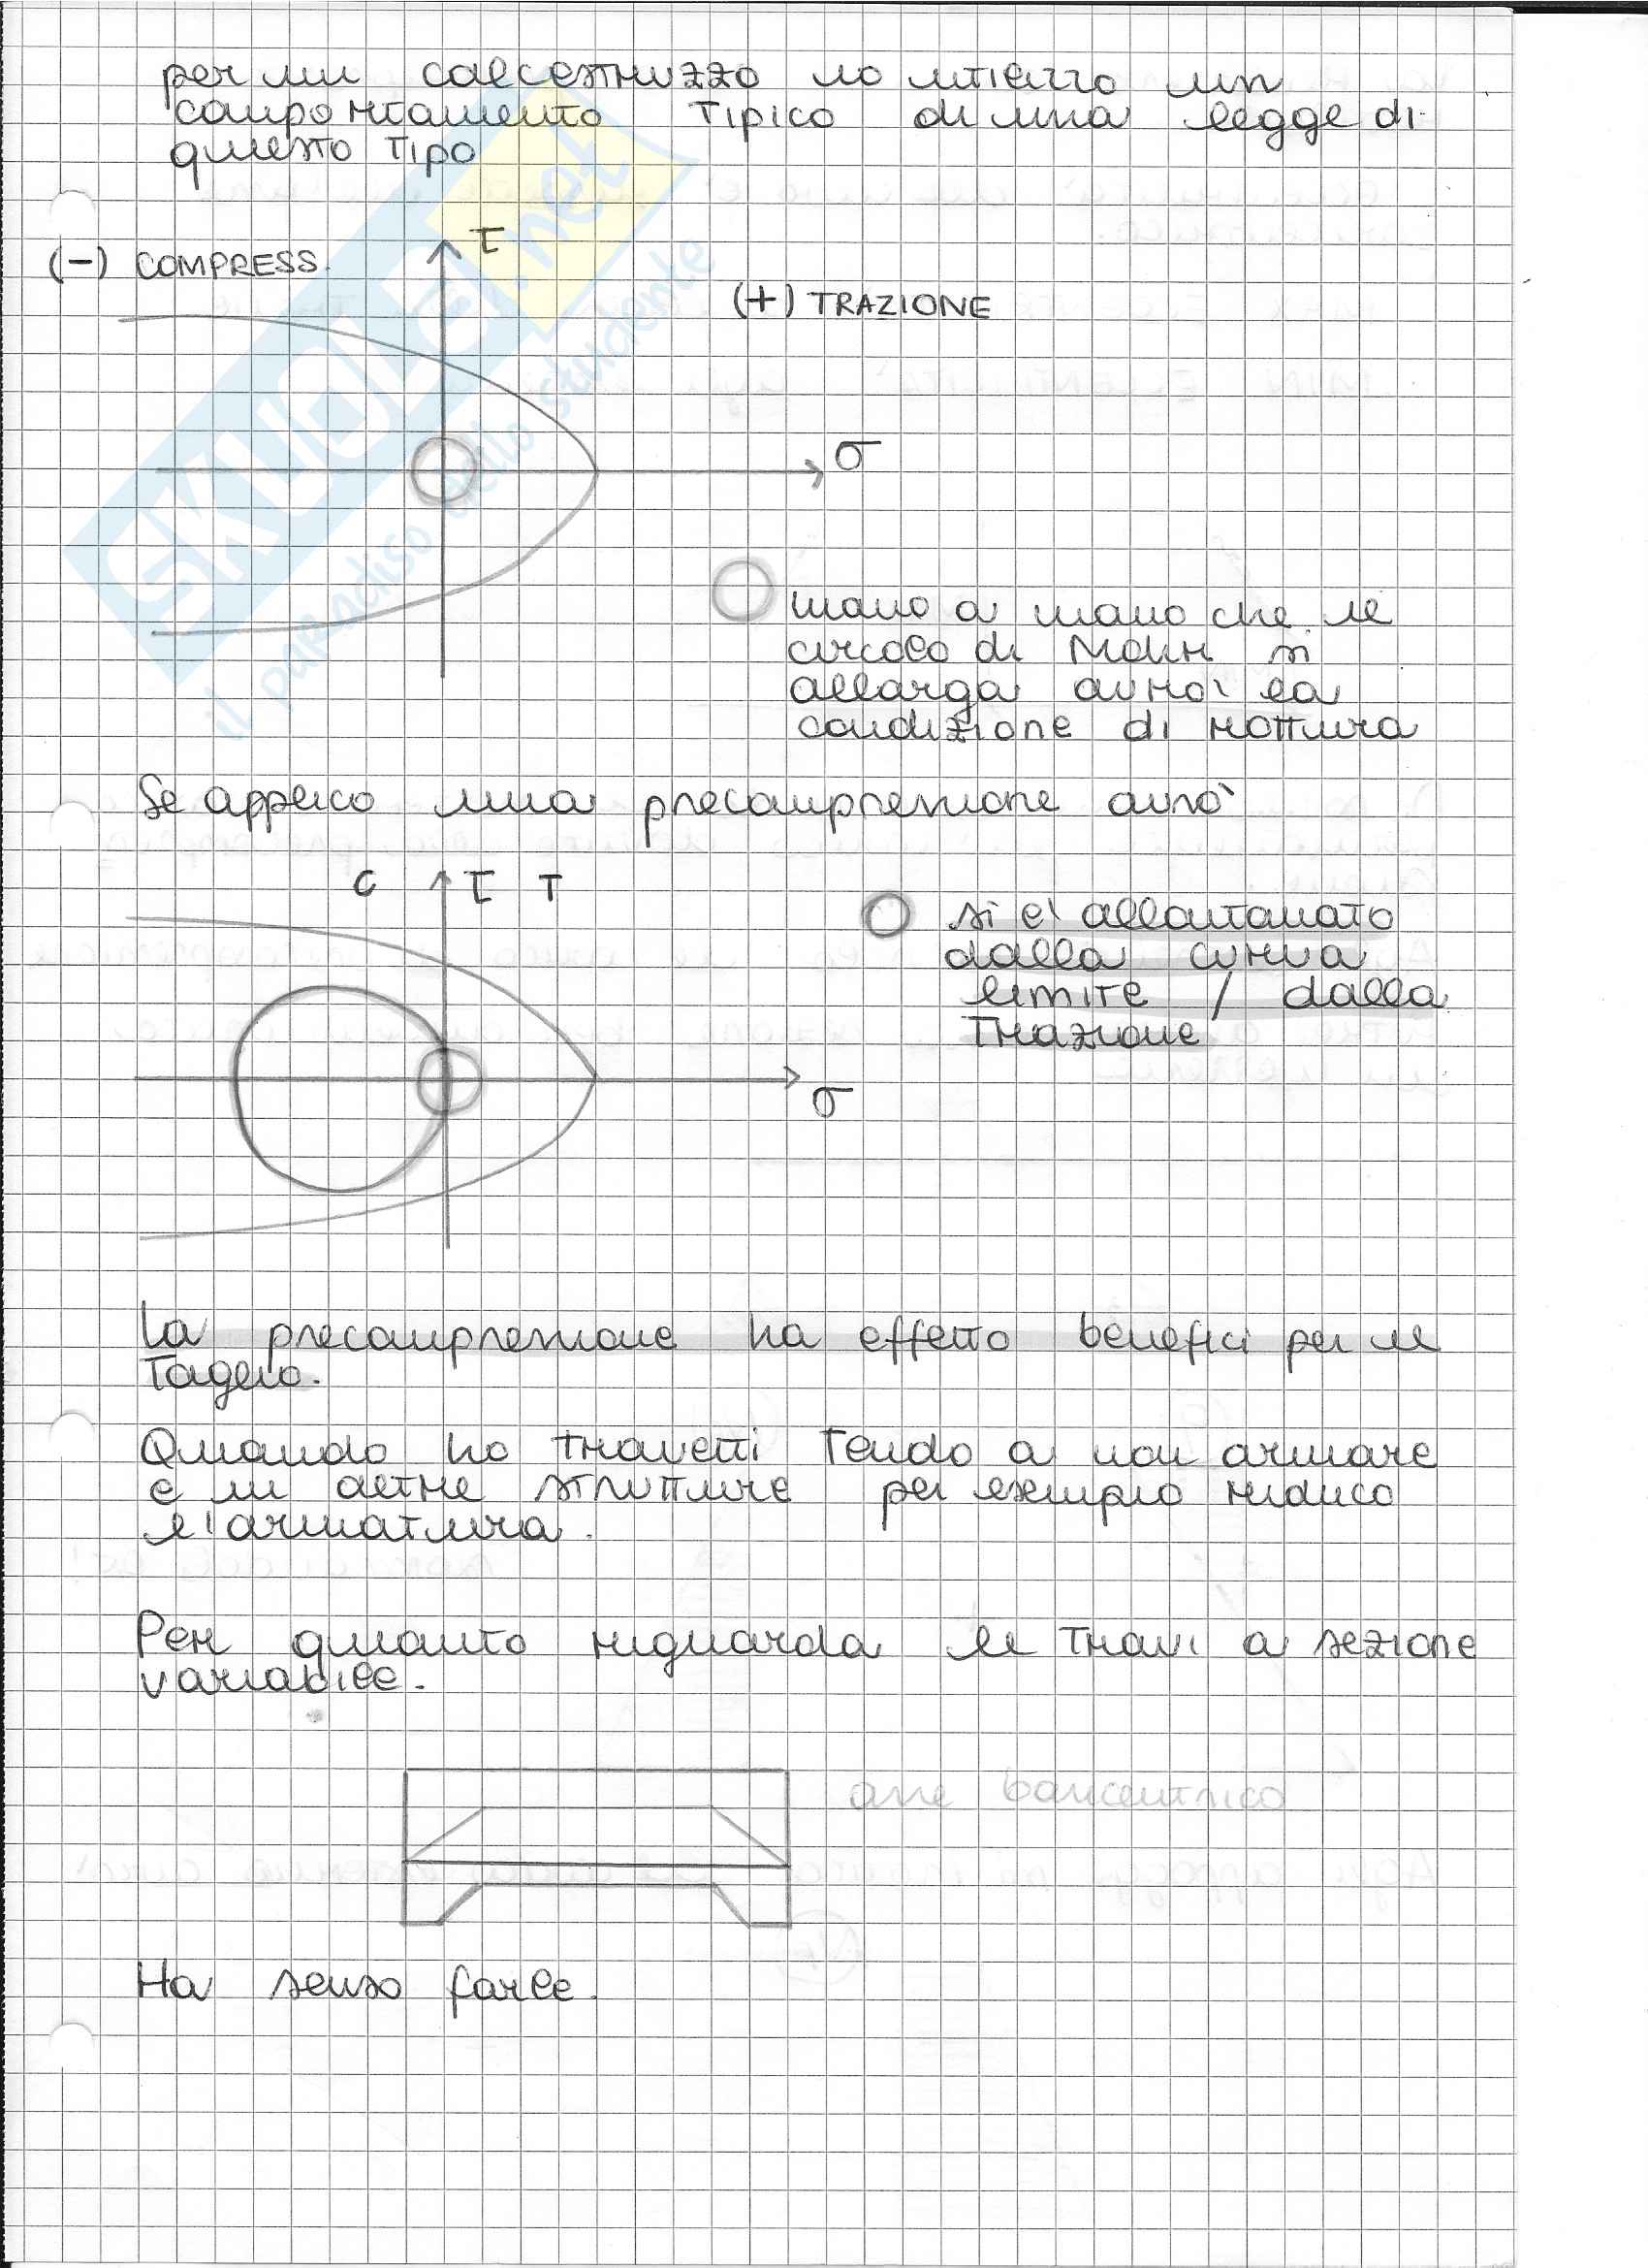 per un calcestruzzo io utilizzo un
comportamento tipico di una legge di
questo tipo
(-) COMPRESS.
τ
(+) TRAZIONE
σ
mano a mano che il
circolo di Mohr si
allarga avrò la
condizione di rottura
Se applico una precompressione avrò
C τ T
si e' allontanato
dalla curva
limite / dalla
trazione
σ
La precompressione ha effetto benefici per il
Taglio.
Quando ho travetti Tendo a non armare
e in altre strutture per esempio riduco
l'armatura.
Per quanto riguarda le Travi a sezione
variabile.
asse baricentrico
Ha senso farle.
SKUOLA.net
il paradiso dello studente